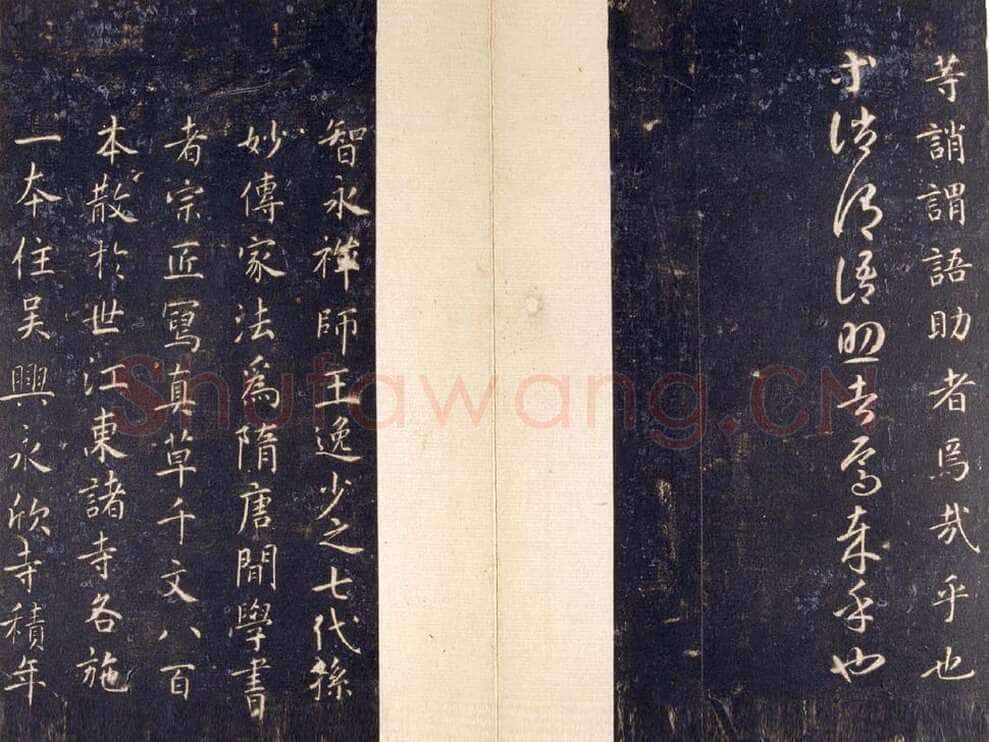 等誚謂語助者焉哉乎也
等誚謂語助者焉哉乎也
智永禪師王逸少之七代孫
妙傳家法爲隋唐間學書
者宗匠寫真草千文八百
本散於世江東諸寺各施
一本住吳興永欣寺積年
Shufawang.CN